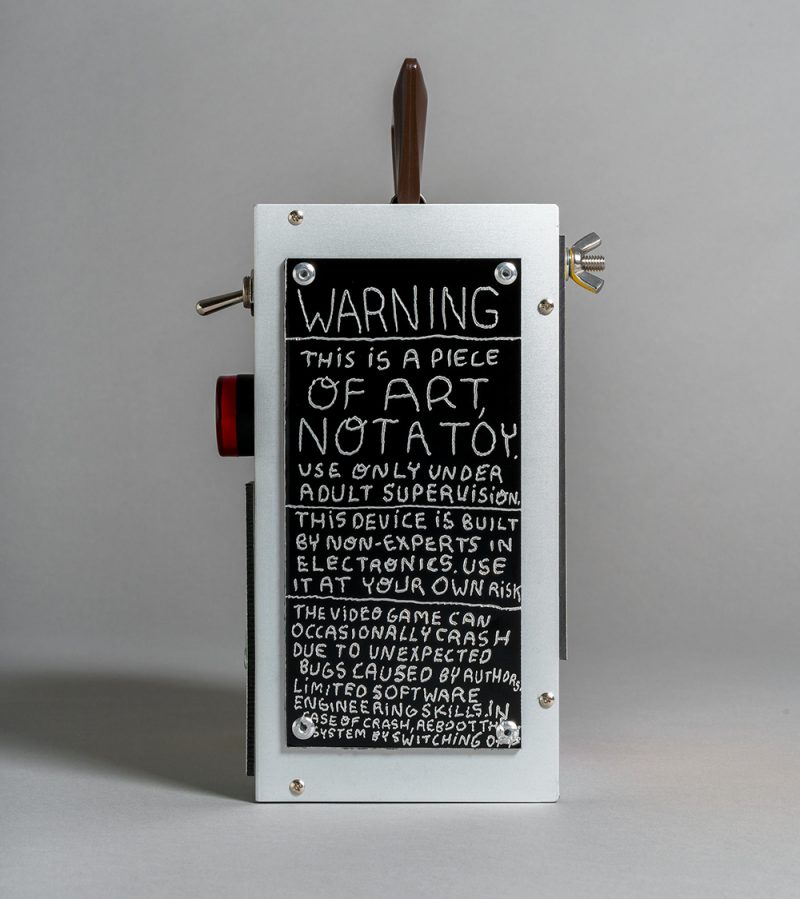 WARNING
THIS IS A PIECE
OF ART,
NOT A TOY.
USE ONLY UNDER
ADULT SUPERVISION.
THIS DEVICE IS BUILT
BY NON-EXPERTS IN
ELECTRONICS. USE
IT AT YOUR OWN RISK
THE VIDEO GAME CAN
OCCASIONALLY CRASH
DUE TO UNEXPECTED
BUGS CAUSED BY AUTHORS,
LIMITED SOFTWARE
ENGINEERING SKILLS. IN
CASE OF CRASH, REBOOT
SYSTEM BY SWITCHING